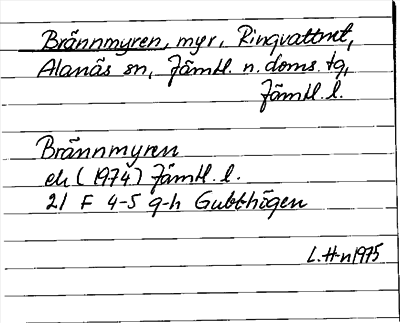 Brännmyren, myr, Ringvattnet,
Alanäs sn, Jämtl. n. doms. tg,
Jämtl. l.
Brännmyren
ek (1974) Jämtl. l.
21 F 4-5 g-h Gubbhögen
L. H-n 1975